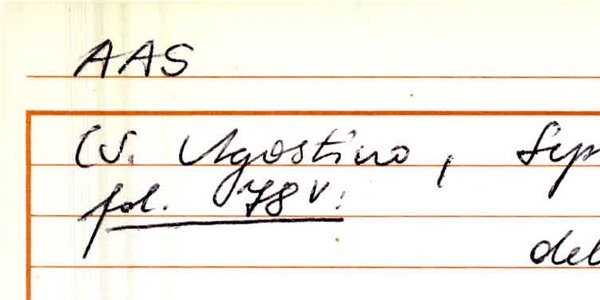 AAS
(V. Agostino,
fol. 78 v:
del